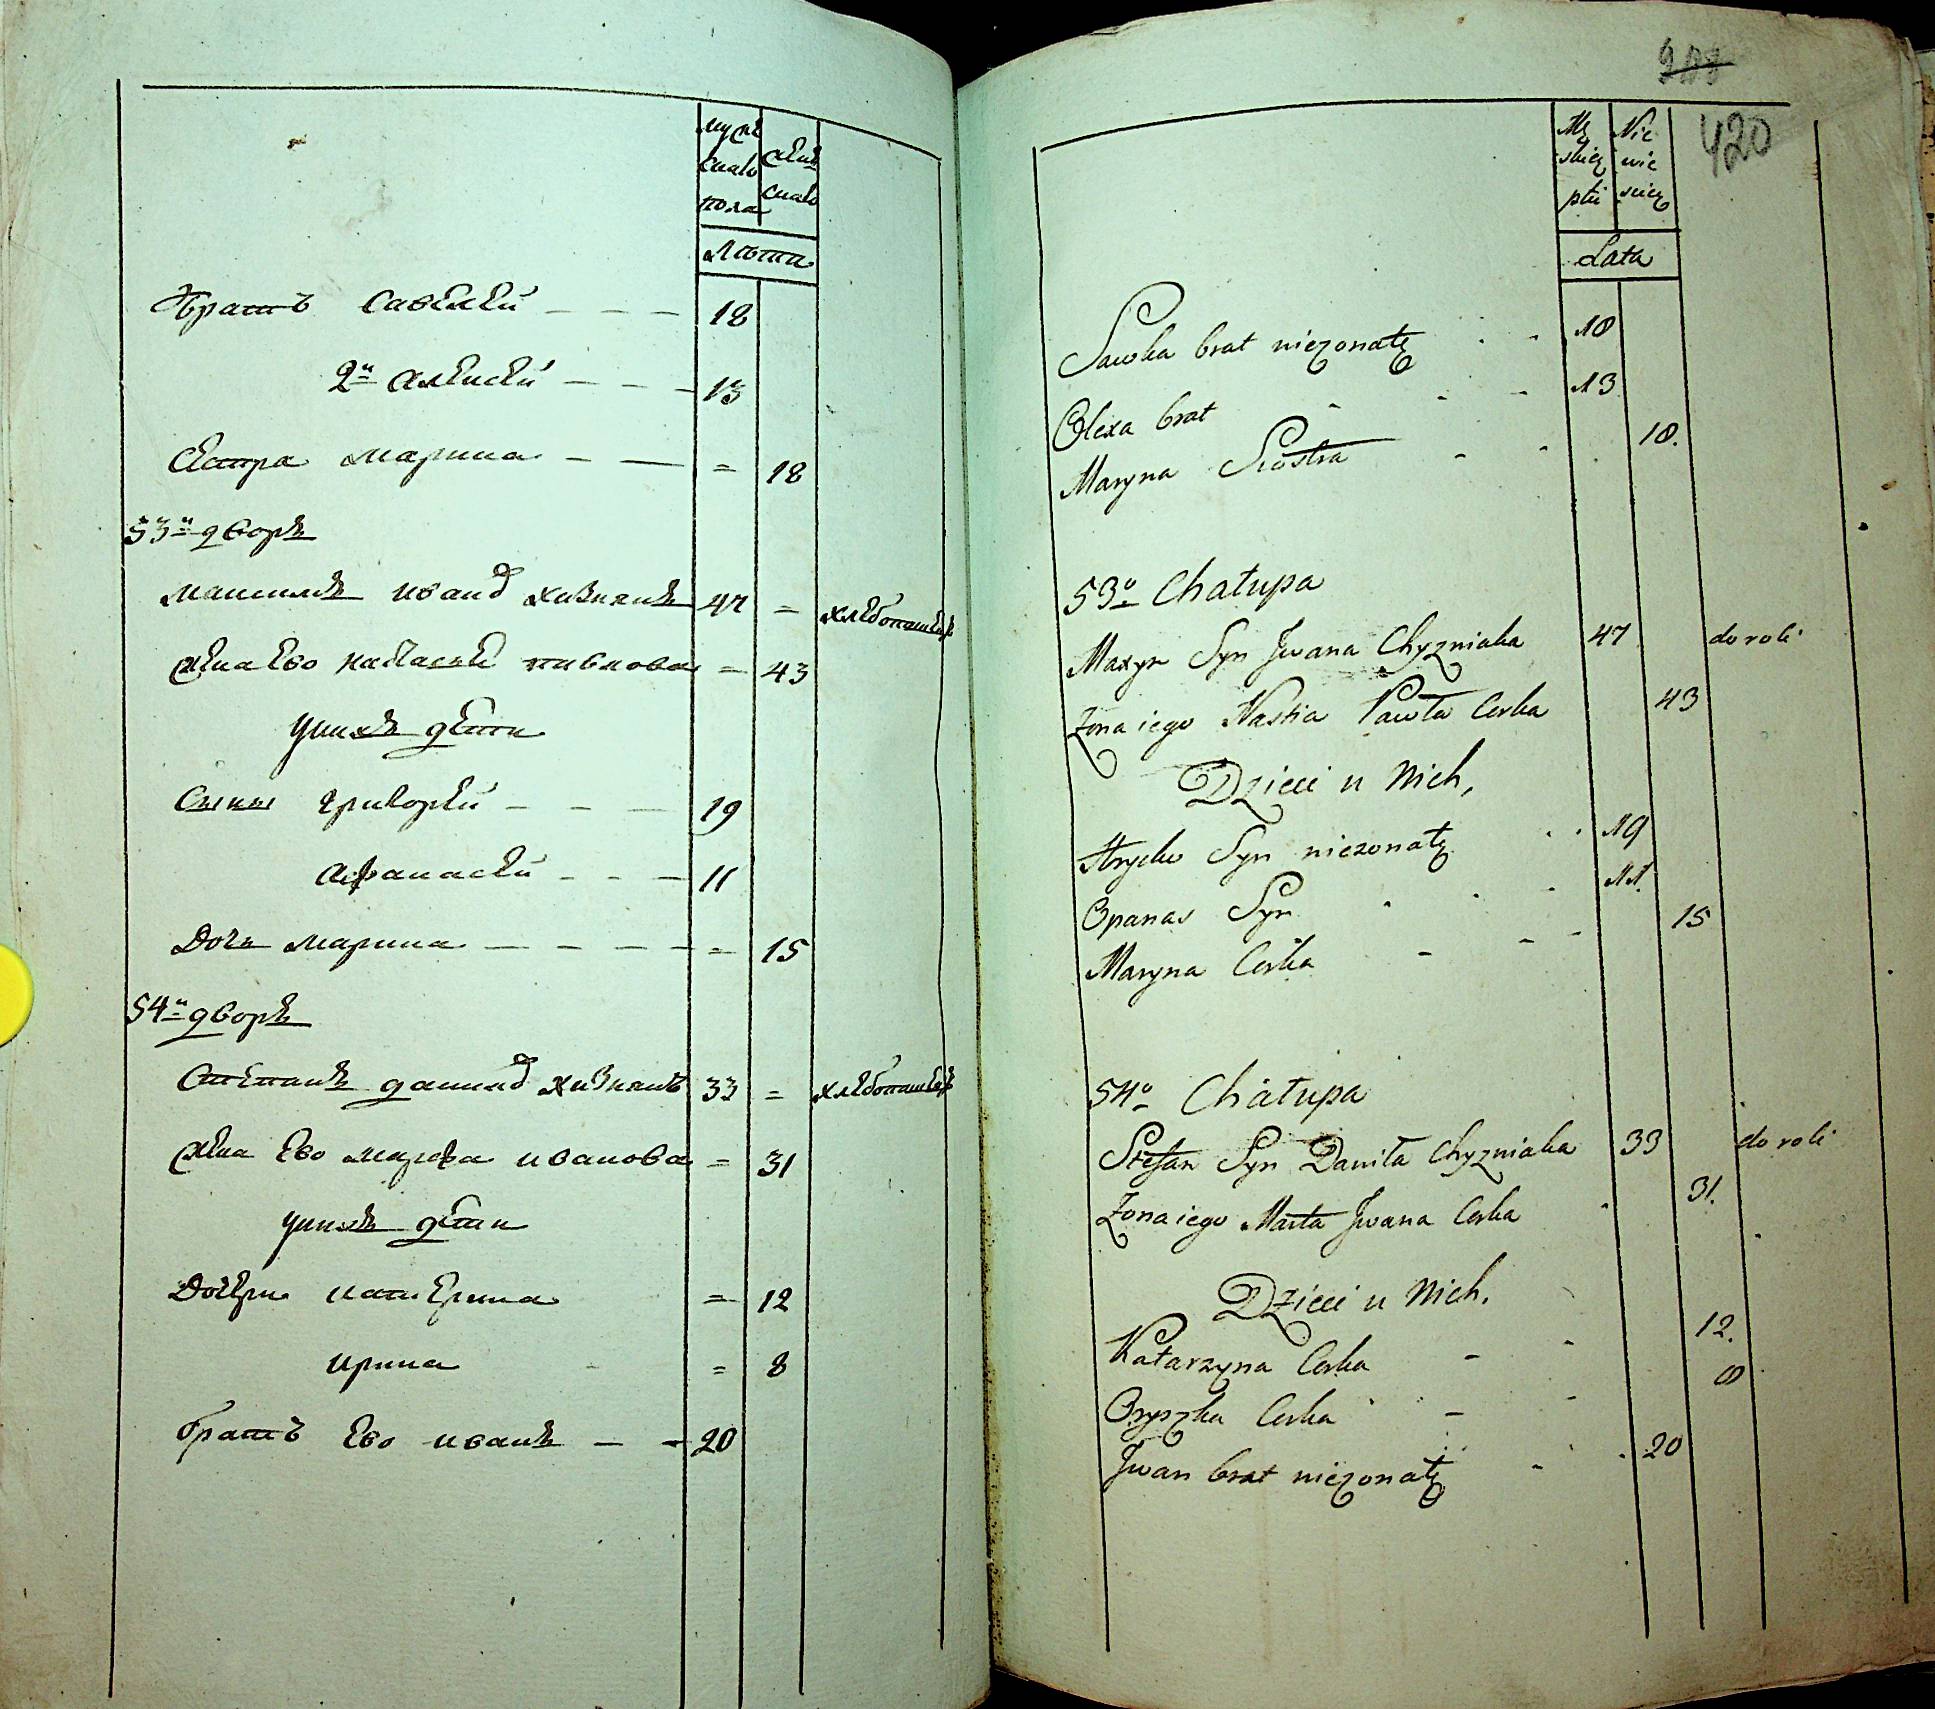 мужеска пола
женска
Лѣта
братъ Савелей 18
2й Алексей 13
Сестра марина = 18
53й дворъ
максимъ иванд хизнякъ 47 = хлебопашецъ
жена Ево настасья павлова = 43
у нихъ дети
Сыны григорей 19
афанасей 11
Дочь марина = 15
54й дворъ
Степанъ данилд хизнякъ 33 = хлебопашецъ
жена Ево марфа иванова = 31
у нихъ дети
Дочери катерина = 12
ирина = 8
братъ Ево иванъ 20
420
Męskiej płci
Niewieściej
Lata
Sawka brat nieżonatÿ 18
Olexa brat 13
Maryna Siostra 18.
53o Chałupa
Maxym Syn Jwana Chyzniaka 47 do roli
Zona iego Nastia Pawła Corka 43
Dzieci u Nich,
Hryćko Syn niezonaty 19
Opanas Syn 11.
Maryna Corka 15
54o Chałupa
Stefan Syn Daniła Chyzniaka 33 do roli
Zona iego Marta Jwana Corka 31.
Dzieci u Nich.
Katarzyna Corka 12.
Oryszka Corka 8
Jwan brat nieżonaty 20